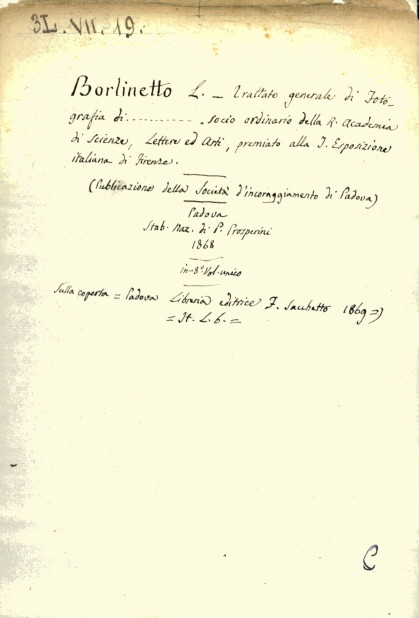 3L. VII. 19.
Borlinetto L. _ Trattato generale di Foto-
grafia di........... socio ordinario della R. Academia
di Scienze, Lettere ed Arti, premiato alla I. Esposizione
italiana di Firenze.
(Publicazione della Società d'incoraggiamento di Padova)
Padova
Stab. Naz. di P. Prosperini
1868
in-8º Vol. unico
Sulla coperta = Padova Libraria editrice F. Sacchetto 1869 =)
= It. L. 6. =
C